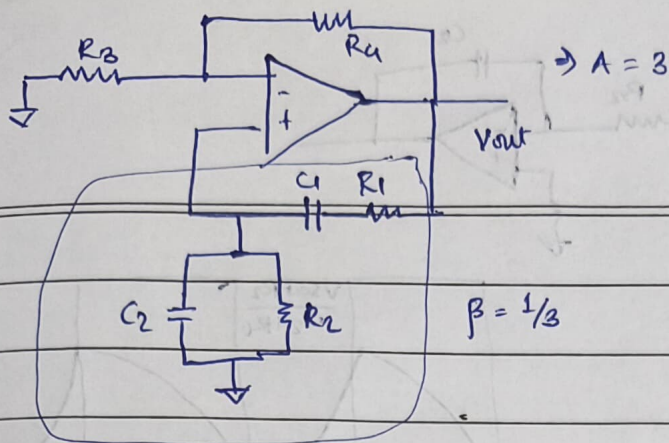 R3
R4
⇒ A = 3
-
+
Vout
C1 R1
C2
R2
β = 1/3